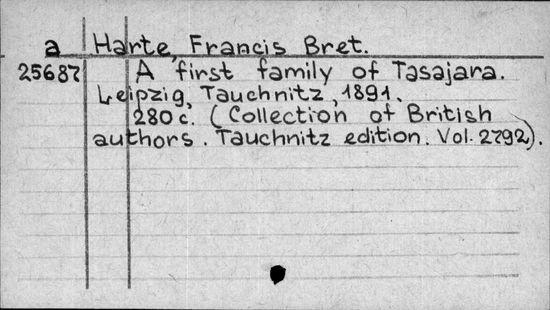 a Harte, Francis Bret.
25687 A first family of Tasajara.
Leipzig, Tauchnitz, 1891.
280 c. (Collection of British
authors. Tauchnitz edition. Vol. 2792).